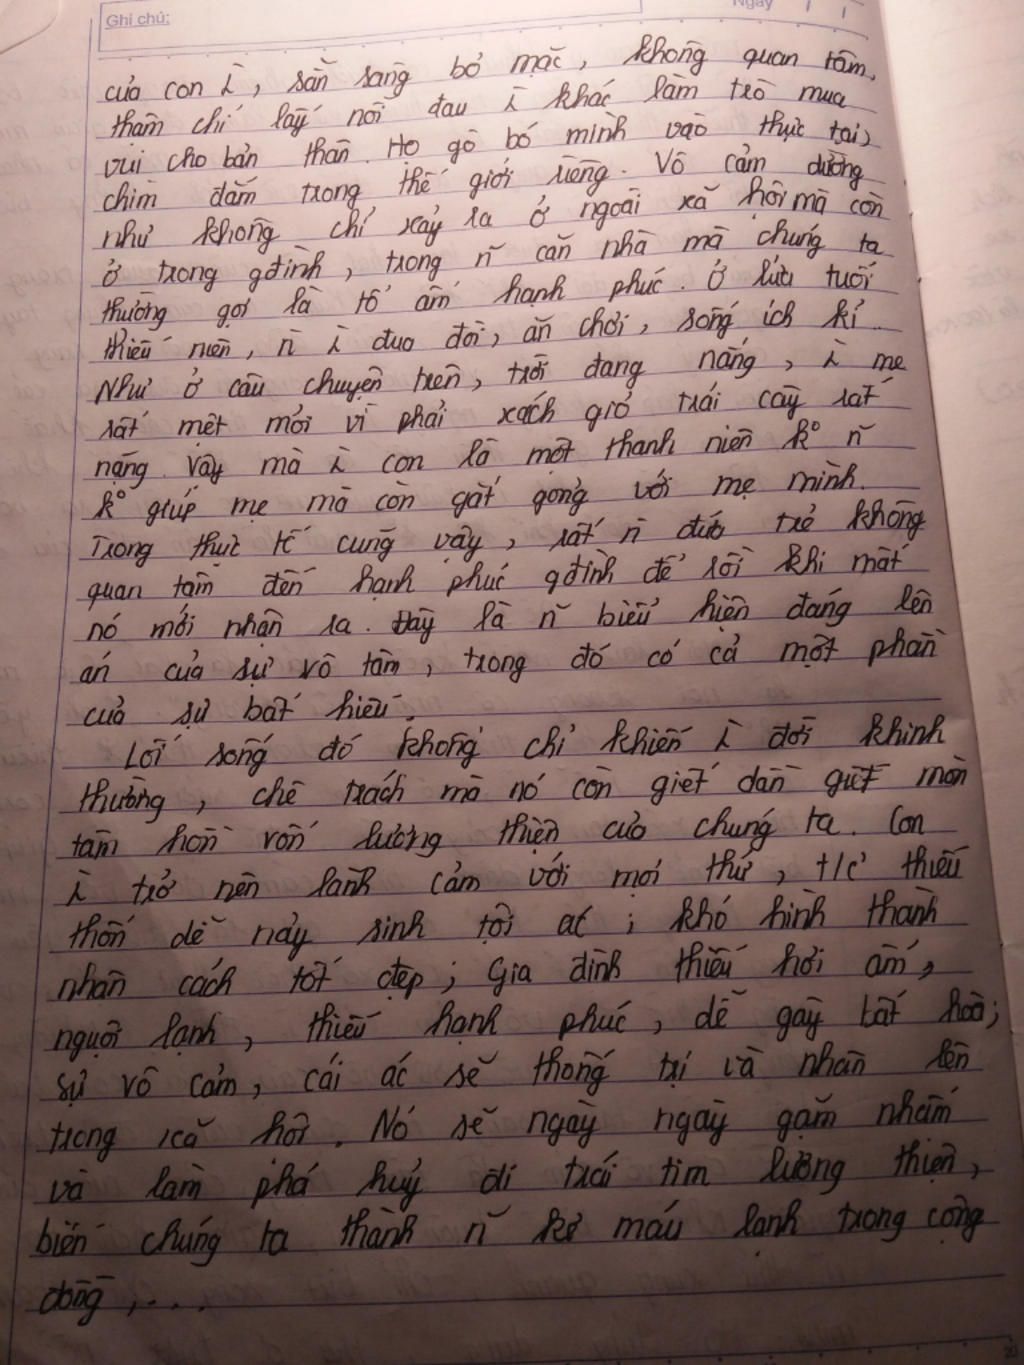 Ghi chú:
Ngày / /
của con ỉ, sẵn sàng bỏ mặc, không quan tâm,
thậm chí lấy nỗi đau ỉ khác làm trò mua
vui cho bản thân. Họ gò bó mình vào thực tại,
chìm đắm trong thế giới riêng. Vô cảm dường
như không chỉ xảy ra ở ngoài xã hội mà còn
ở trong gđình, trong n~ căn nhà mà chúng ta
thường gọi là tổ ấm hạnh phúc. Ở lứa tuổi
thiếu niên, n` ỉ đua đòi, ăn chơi, sống ích kỉ.
Như ở câu chuyện trên, trời đang nắng, ỉ mẹ
rất mệt mỏi vì phải xách giỏ trái cây rất
nặng. Vậy mà ỉ con là một thanh niên k° n~
k° giúp mẹ mà còn gắt gỏng với mẹ mình.
Trong thực tế cũng vậy, rất n` đứa trẻ không
quan tâm đến hạnh phúc gđình để rồi khi mất
nó mới nhận ra. Đây là n~ biểu hiện đáng lên
án của sự vô tâm, trong đó có cả một phần
của sự bất hiếu.
Lối sống đó không chỉ khiến ỉ đời khinh
thường, chê trách mà nó còn giết dần giết mòn
tâm hồn vốn lương thiện của chúng ta. Con
ỉ trở nên lãnh cảm với mọi thứ, t/c' thiếu
thốn dễ nảy sinh tội ác; khó hình thành
nhân cách tốt đẹp; Gia đình thiếu hơi ấm,
nguội lạnh, thiếu hạnh phúc, dễ gây bất hoà;
sự vô cảm, cái ác sẽ thống trị và nhân lên
trong xã hội. Nó sẽ ngày ngày gặm nhấm
và làm phá huỷ đi trái tim lương thiện,
biến chúng ta thành n~ kẻ máu lạnh trong cộng
đồng,...